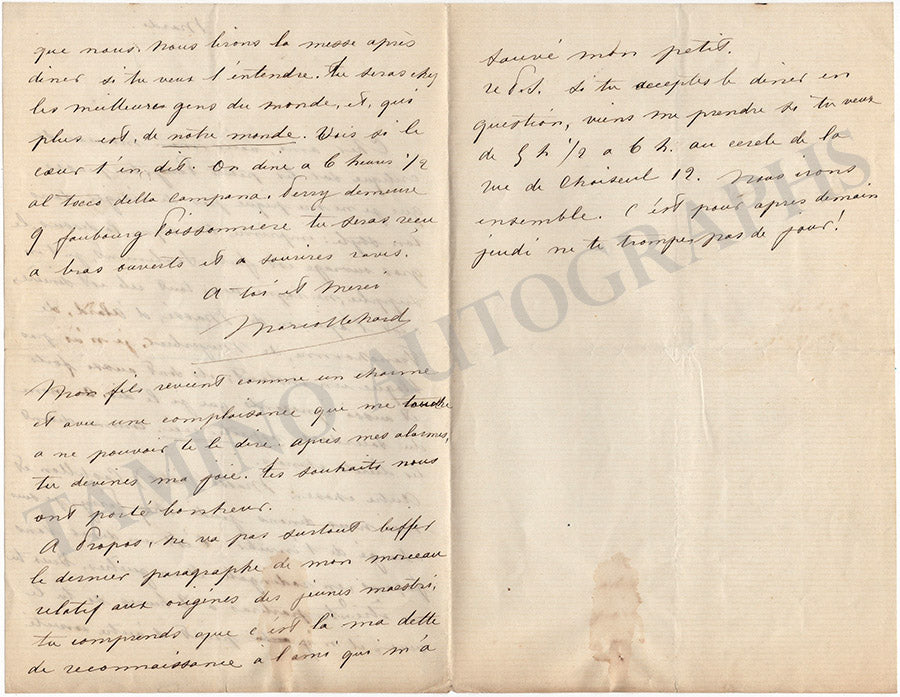 que nous. Nous lirons la messe après
diner si tu veux l'entendre. Tu seras chez
les meilleures gens du monde, et, qui
plus est, de notre monde. Vois si le
cœur t'en dit. On dine a 6 heures 1/2
al tocco della campana. Perry demeure
9 faubourg Poissonnière tu seras recu
a bras ouverts et a sourires ravis.
A toi et merci
Mon fils revient comme un charme
et avec une complaisance que me touche
a ne pouvoir te le dire. Après mes alarmes,
tu devines ma joie. tes souhaits nous
ont porté bonheur.
A Propos, ne va pas surtout biffer
le dernier paragraphe de mon morceau
relatif aux origines des jeunes maestri,
tu comprends que c'est là ma dette
de reconnaissance a l'ami qui m'a
sauvé mon petit.
re P.S. si tu acceptes le diner en
question, viens me prendre si tu veux
de 5 h 1/2 a 6 h. au cercle de la
rue de Choiseul 12. Nous irons
ensemble. C'est pour après demain
jeudi ne te trompes pas de jour!
TAMINO AUTOGRAPHS